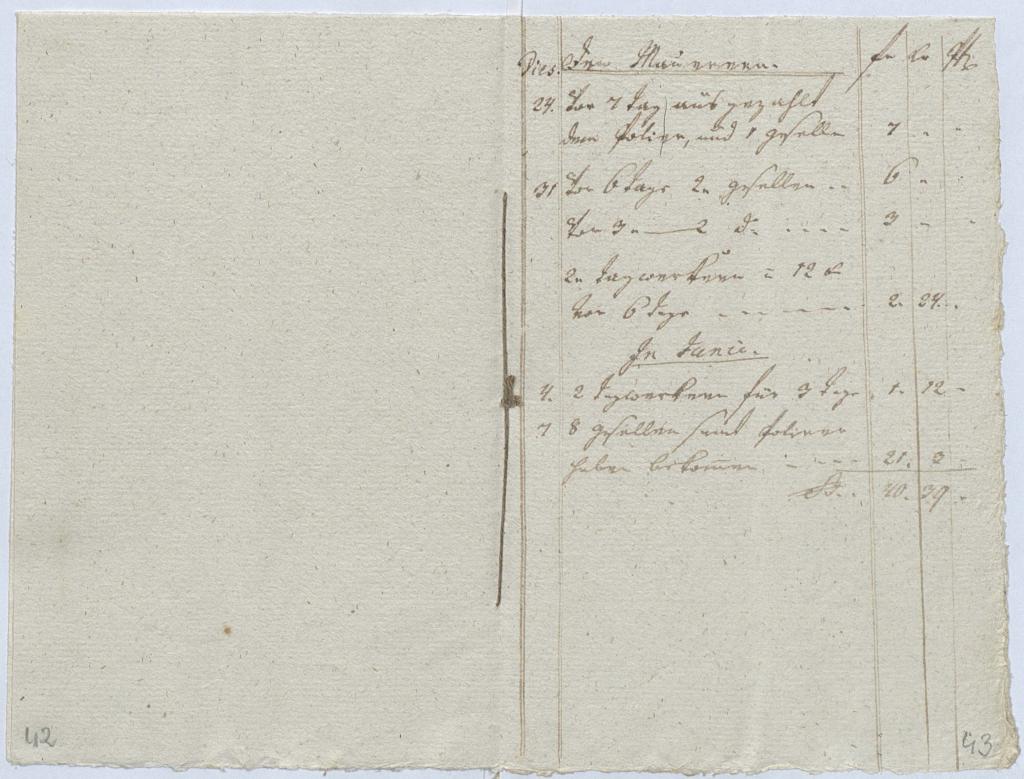 Dies. Den Maurern. fr xr
24. vor 7 Tag ausgezahlt
dem Polier, und 1 gesellen 7 - -
31 vor 6 Tage 2 gesellen - - 6 -
vor 3 - 2 d° - - - - 3 - -
2 Tagwerkern à 12 x
vor 6 Tage - - - - - - 2. 24. -
In Junii.
4. 2 Tagwerkern für 3 Tage 1. 12 -
7 8 gesellen samt Polierer
haben bekommen - - - - 21. 3 -
40. 39 -
42
43